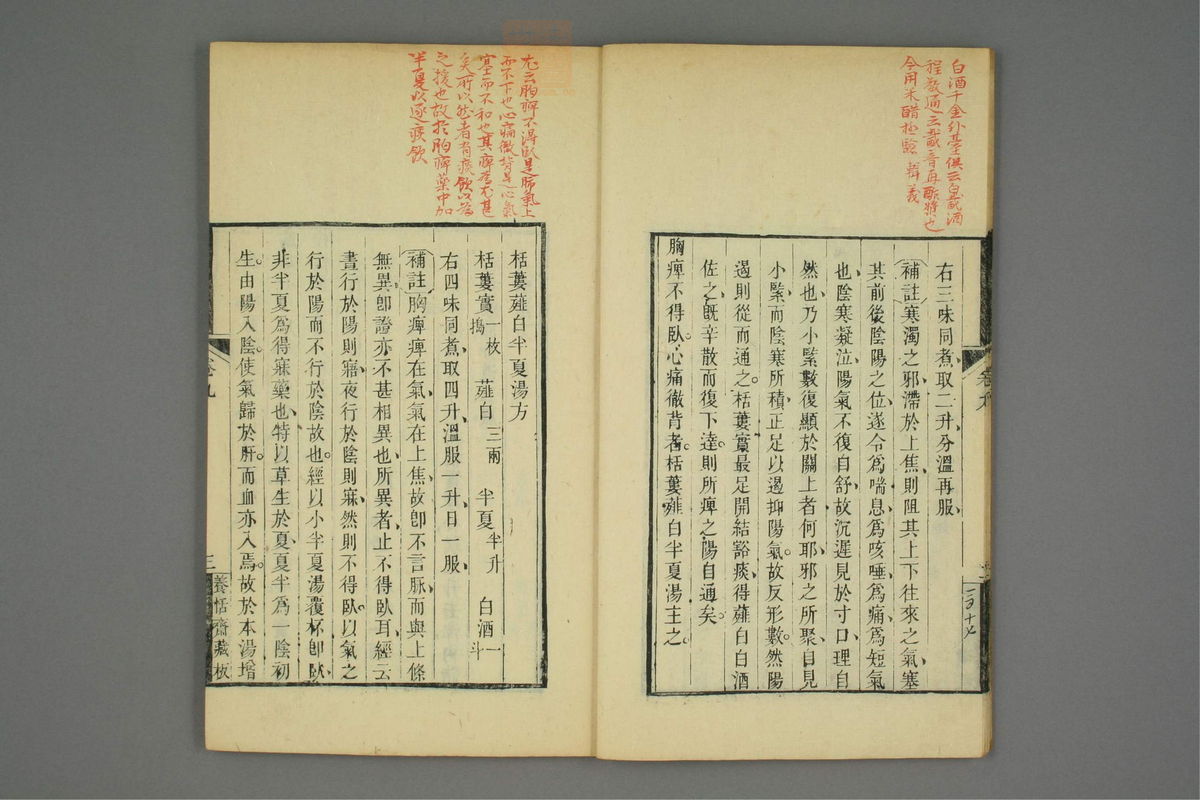 白酒千金外臺俱云白酨酒
程敬通云酨音再酢漿也
今用米醋極驗 輯義
右三味同煮取二升分溫再服
補註寒濁之邪滯於上焦則阻其上下往來之氣塞
其前後陰陽之位遂令爲喘息爲咳唾爲痛爲短氣
也陰寒凝泣陽氣不復自舒故沉遲見於寸口理自
然也乃小緊數復顯於關上者何耶邪之所聚自見
小緊而陰寒所積正足以遏抑陽氣故反形數然陽
遏則從而通之栝蔞實最足開結豁痰得薤白白酒
佐之旣辛散而復下達則所痺之陽自通矣
胸痺不得臥心痛徹背者栝蔞薤白半夏湯主之
卷九
尤云胸痺不得臥是肺氣上
而不下也心痛徹背是心氣
塞而不和也其痺爲尤甚
矣所以然者有痰飲以爲
之援也故於胸痺藥中加
半夏以逐痰飲
栝蔞薤白半夏湯方
栝蔞實一枚搗 薤白三兩 半夏半升 白酒一斗
右四味同煮取四升溫服一升日一服
補註胸痺痺在氣氣在上焦故卽不言脈而與上條
無異卽證亦不甚相異也所異者止不得臥耳經云
晝行於陽則寤夜行於陰則寐然則不得臥以氣之
行於陽而不行於陰故也經以小半夏湯覆杯卽臥
非半夏爲得寐藥也特以草生於夏夏半爲一陰初
生由陽入陰使氣歸於肝而血亦入焉故於本湯增
卷九
三
養恬齋藏板